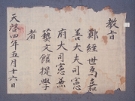 教旨
鄭經世爲嘉
善大夫司憲
府大司憲兼
藝文館提學
者
天啓四年五月十六日